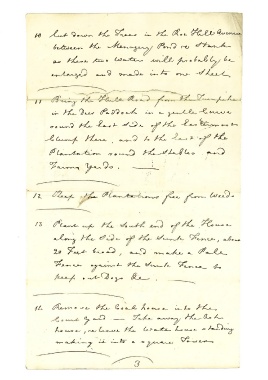 10 Cut down the Trees in the Roe Hill Avenue
between the Menagery Pond &
as these two Waters will probably be
enlarged and made into one Sheet
11 Bring the Road from the
in the Paddock in a gentle Curve
round the East side of the
Clump there, and to the East of the
Plantation round the Stables and
Farm Yards.
12 Keep the Plantations free from Weeds
13 Plant up the South end of the House
along the Side of the Sunk Fence, about
20 Feet broad, and make a Pale
Fence against the Sunk Fence to
keep out Dogs &c.
14 Remove the Coal house into the
Court Yard — Take away the
house, & leave the Water house standing
making it into a square Tower
3